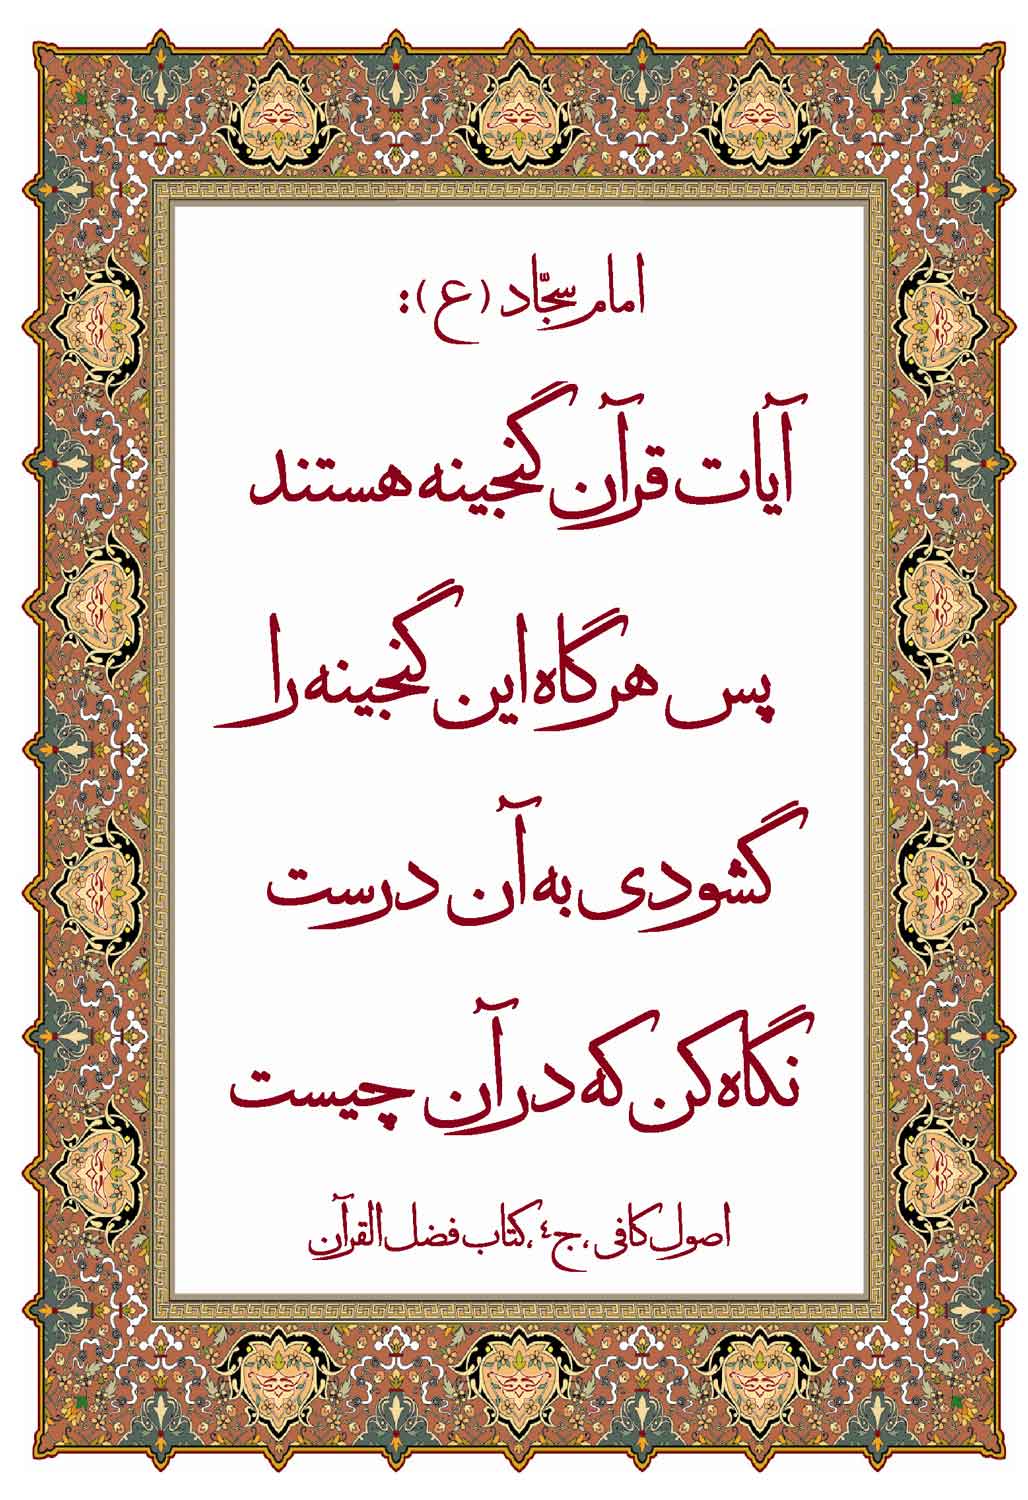 امام سجّاد (ع):
آیات قرآن گنجینه هستند
پس هرگاه این گنجینه را
گشودی به آن درست
نگاه کن که در آن چیست
اصول کافی، ج٤، کتاب فضل القرآن